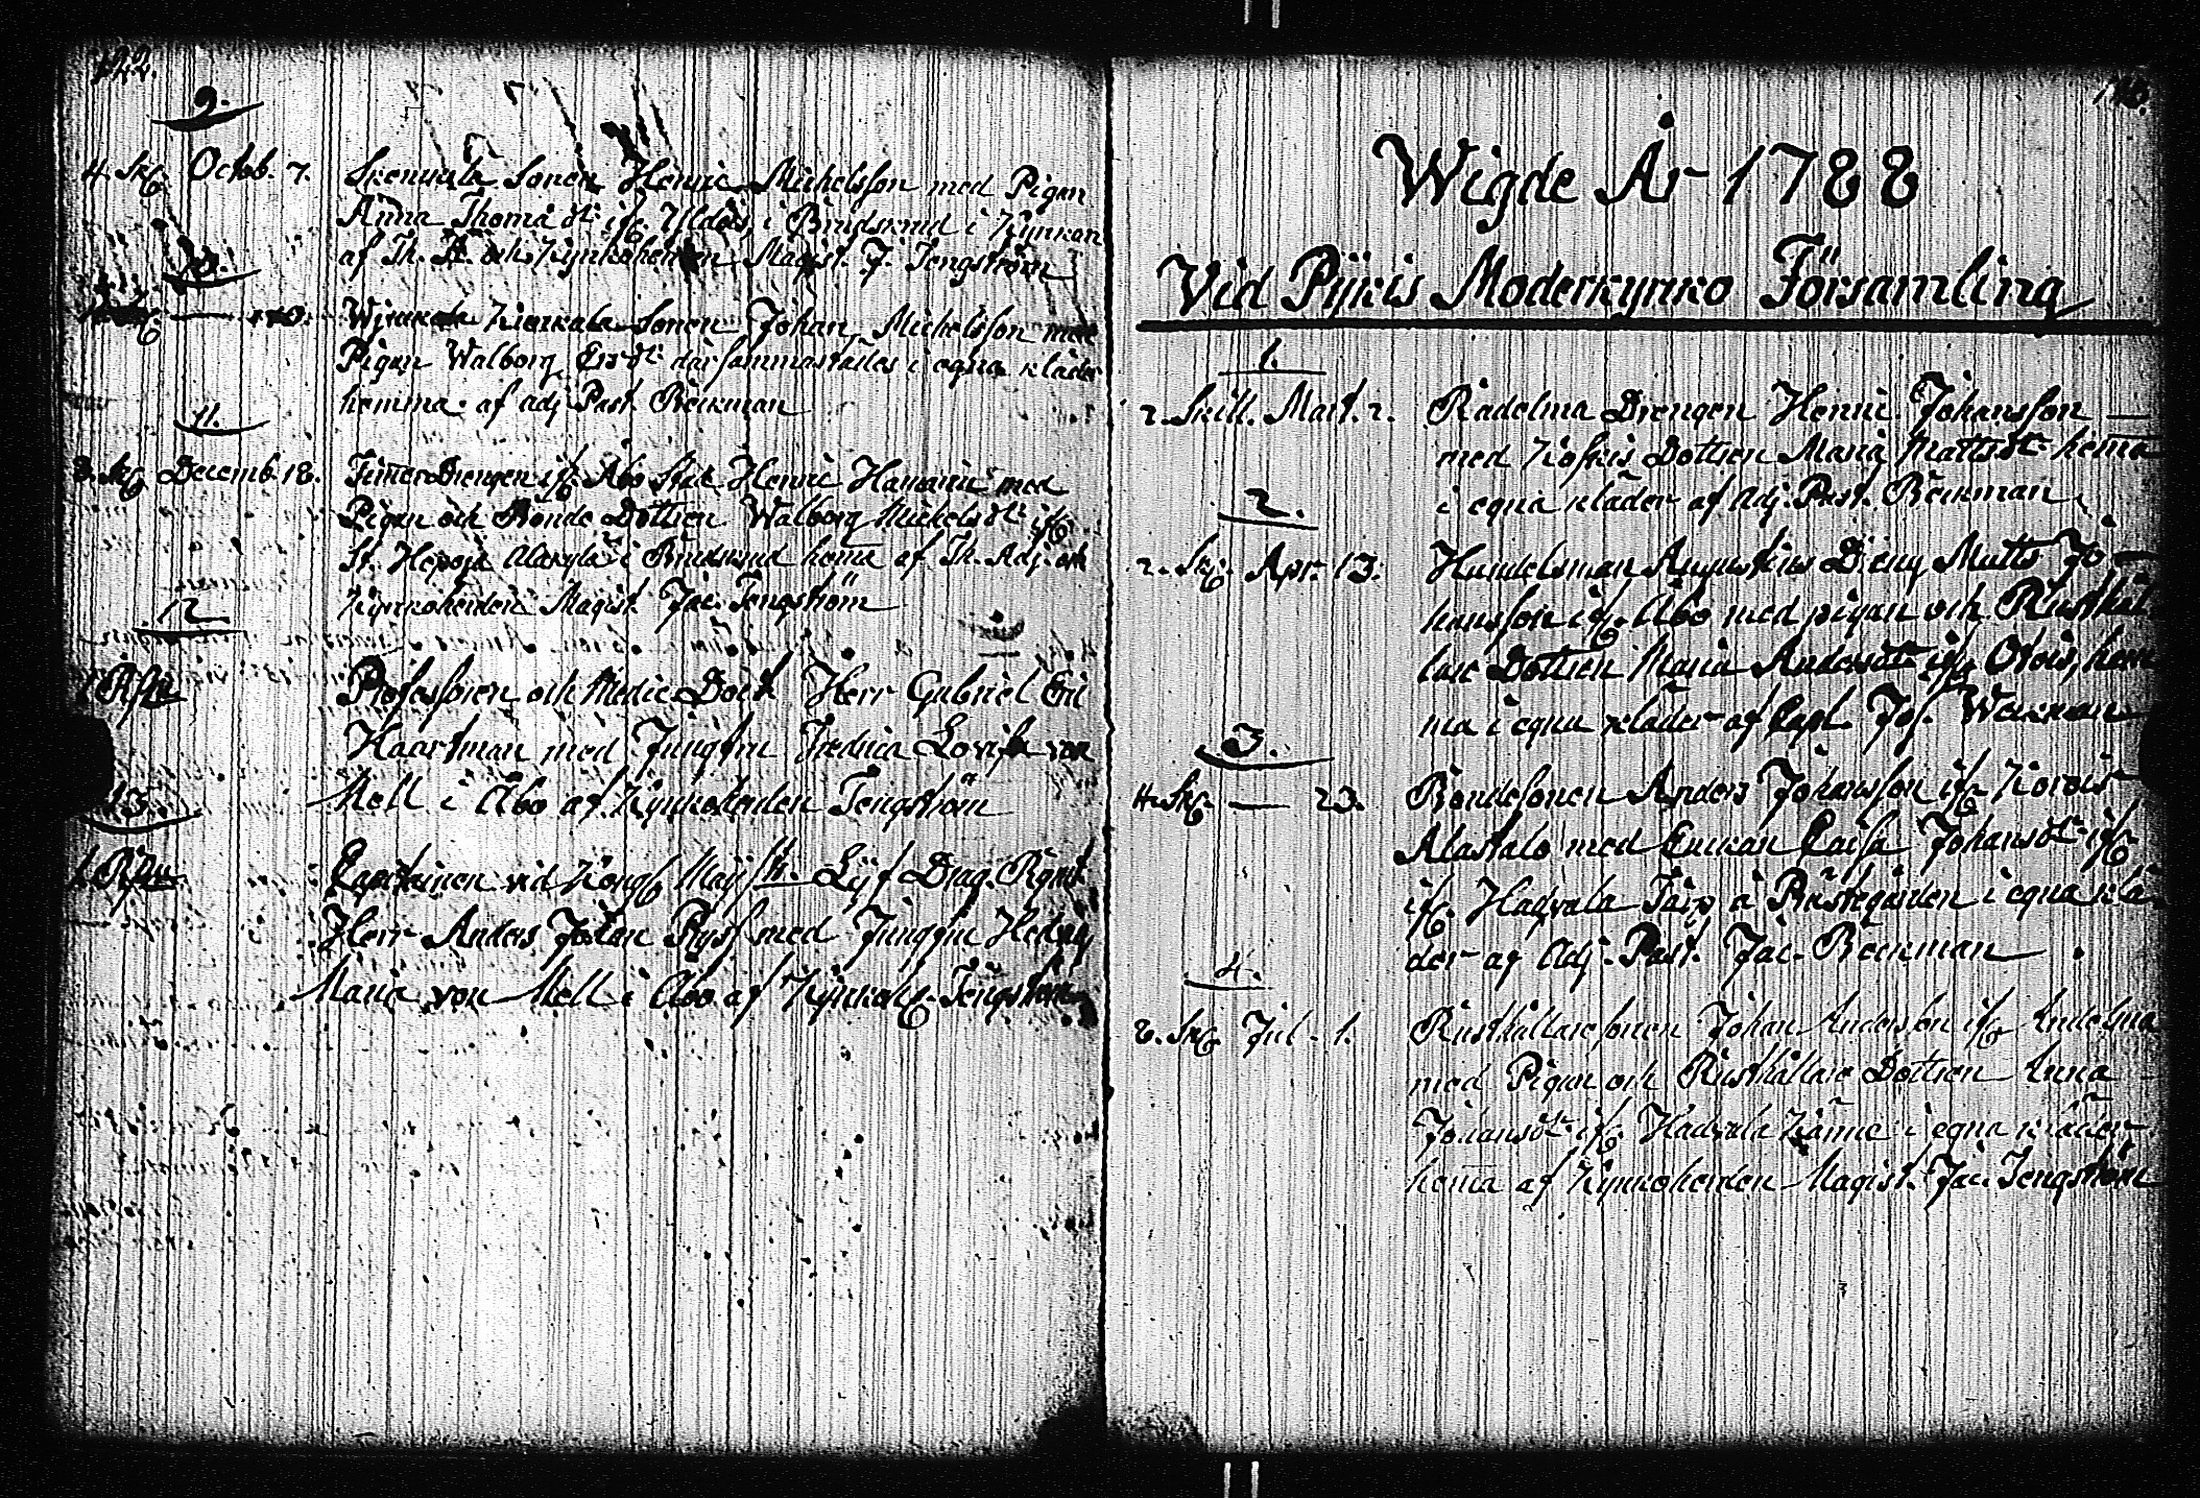 122.
9.
4. Sk. Octob. 7. Sonen Henric Michelsson med Pigan
Anna Thomæ dr ifr. i Brudskrud i Kyrkan
af Th. A. och Kyrkoherden Magist. J. Tengström
10.
Sonen Johan Michelsson med
Pigan Walborg Ersdr därsammastädes i egna kläder
hemma af adj. Past. Beckman
11.
8. Sk. Decemb. 18. Drengen ifr. Åbo Stad Henric med
Pigan och Bonde Dottren Walborg Michelsdr ifr.
St. Hepoja Alakylä i Brudskrud hema af Th. Adj. och
Kyrkoherden Magist. Jac. Tengström
12
1 Rd
Professoren och Medic. Doct. Herr Gabriel Eric
Haartman med Jungfru Fredrica Lovisa von
Mell i Åbo af Kyrkoherden Tengström
13.
1. Rd
Capitainen vid Kongl. Maij:tt Lijf Drag. Regmt
Herr Anders Johan Ryss med Jungfru Hedvig
Maria von Mell i Åbo af Kyrkoh. Tengström
Wigde År 1788
Vid Pijkis Moderkyrko Församling
1.
2. Skill. Mart. 2. Radelma Drengen Henric Johansson
med Koskis Dottren Maria Mattsdr hema
i egna kläder af Adj. Past. Beckman
2.
2. Sk. Apr. 13. Handelsman Dreng Matts Jo-
hansson ifr. Åbo med pigan och Rusthål-
lare Dottren Maria Andersdr ifr. Otois, hem-
ma i egna kläder af Capl. Jos. Weckman
3.
4. Sk. — 23. Bondesonen Anders Johansson ifr. Korois
Alastalo med Enkan Caisa Johansdr ifr
ifr. Hadvala Torp å Prästegården i egna klä-
der af Adj. Past. Jac. Beckman
4.
8. Sk. Jul. 1. Rusthållare sonen Johan Andersson ifr.
med Pigan och Rusthållare Dottren Anna
Johansdr ifr. Hadvala i egna kläder
hema af Kyrkoherden Magist. Jac. Tengström